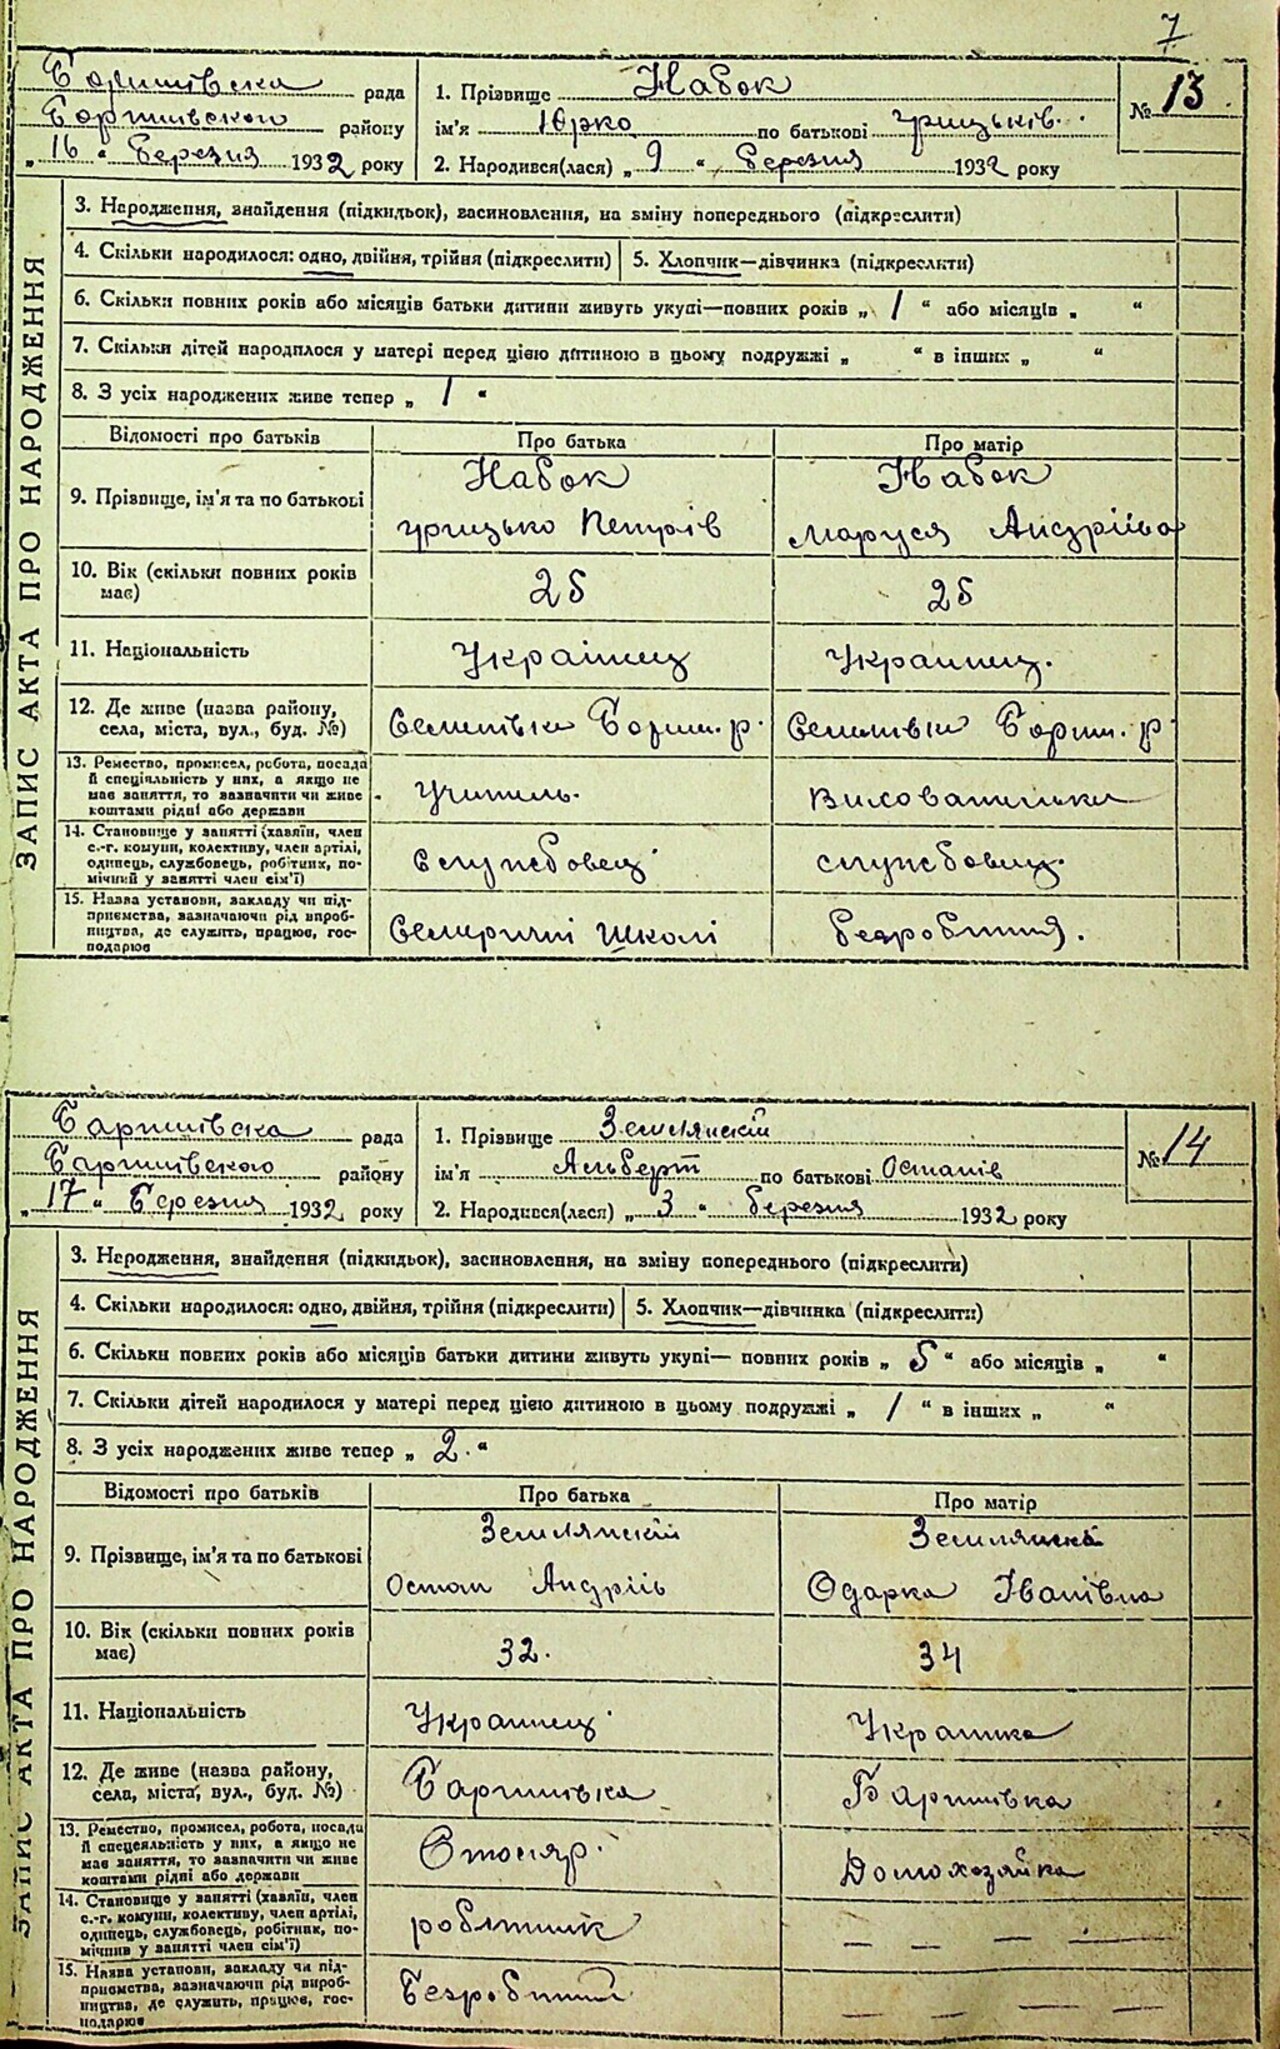 7
Баришівська рада
Баришівського району
„ 16 “ Березня 1932 року
1. Прізвище Набок
ім'я Юрко по батькові Грицьків.
2. Народився(лася) „ 9 “ березня 1932 року
№ 13
ЗАПИС АКТА ПРО НАРОДЖЕННЯ
3. Народження, знайдення (підкидьок), засиновлення, на зміну попереднього (підкреслити)
4. Скільки народилося: одно, двійня, трійня (підкреслити) 5. Хлопчик—дівчинка (підкреслити)
6. Скільки повних років або місяців батьки дитини живуть укупі—повних років „ 1 “ або місяців „ “
7. Скільки дітей народилося у матері перед цією дитиною в цьому подружжі „ “ в інших „ “
8. З усіх народжених живе тепер „ 1 “
Відомості про батьків Про батька Про матір
9. Прізвище, ім'я та по батькові
Набок Набок
Грицько Петрів Маруся Андріївна
10. Вік (скільки повних років має) 25 25
11. Національність Українец Украинец.
12. Де живе (назва району, села, міста, вул., буд. №) Бориш. р. Бориш. р.
13. Ремество, промисел, робота, посада
й спеціяльність у них, а якщо не
має заняття, то зазначити чи живе
коштами рідні або держави
Учитель. Вихователька
14. Становище у занятті (хазяїн, член
с.-г. комуни, колективу, член артілі,
одинець, службовець, робітник, по-
мічний у занятті член сім'ї)
Службовец службовец.
15. Назва установи, закладу чи під-
приємства, зазначаючи рід вироб-
ництва, де служить, працює, гос-
подарює
школі безробітня.
Баришівська рада
Баришівського району
„ 17 “ Березня 1932 року
1. Прізвище Землянскій
ім'я Альберт по батькові Остапів
2. Народився(лася) „ 3 “ березня 1932 року
№ 14
ЗАПИС АКТА ПРО НАРОДЖЕННЯ
3. Народження, знайдення (підкидьок), засиновлення, на зміну попереднього (підкреслити)
4. Скільки народилося: одно, двійня, трійня (підкреслити) 5. Хлопчик—дівчинка (підкреслити)
6. Скільки повних років або місяців батьки дитини живуть укупі— повних років „ 5 “ або місяців „ “
7. Скільки дітей народилося у матері перед цією дитиною в цьому подружжі „ 1 “ в інших „ “
8. З усіх народжених живе тепер „ 2. “
Відомості про батьків Про батька Про матір
9. Прізвище, ім'я та по батькові
Землянскій Землянська
Остап Андріїв Одарка Іванівна
10. Вік (скільки повних років має) 32. 34
11. Національність Украинец Украинка
12. Де живе (назва району, села, міста, вул., буд. №) Баришівка Баришівка
13. Ремество, промисел, робота, посада
й спецеяльність у них, а якщо не
має заняття, то зазначити чи живе
коштами рідні або держави
Столяр. Домохозяйка
14. Становище у занятті (хазяїн, член
с.-г. комуни, колективу, член артілі,
одинець, службовець, робітник, по-
мічник у занятті член сім'ї)
робітник — — — —
15. Назва установи, закладу чи під-
приємства, зазначаючи рід вироб-
ництва, де служить, працює, гос-
подарює
Безробітний — — — —